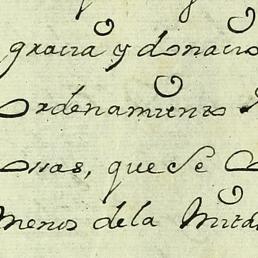 gracia y donació
Ordenamiento
osas, que se
menos dela mitad